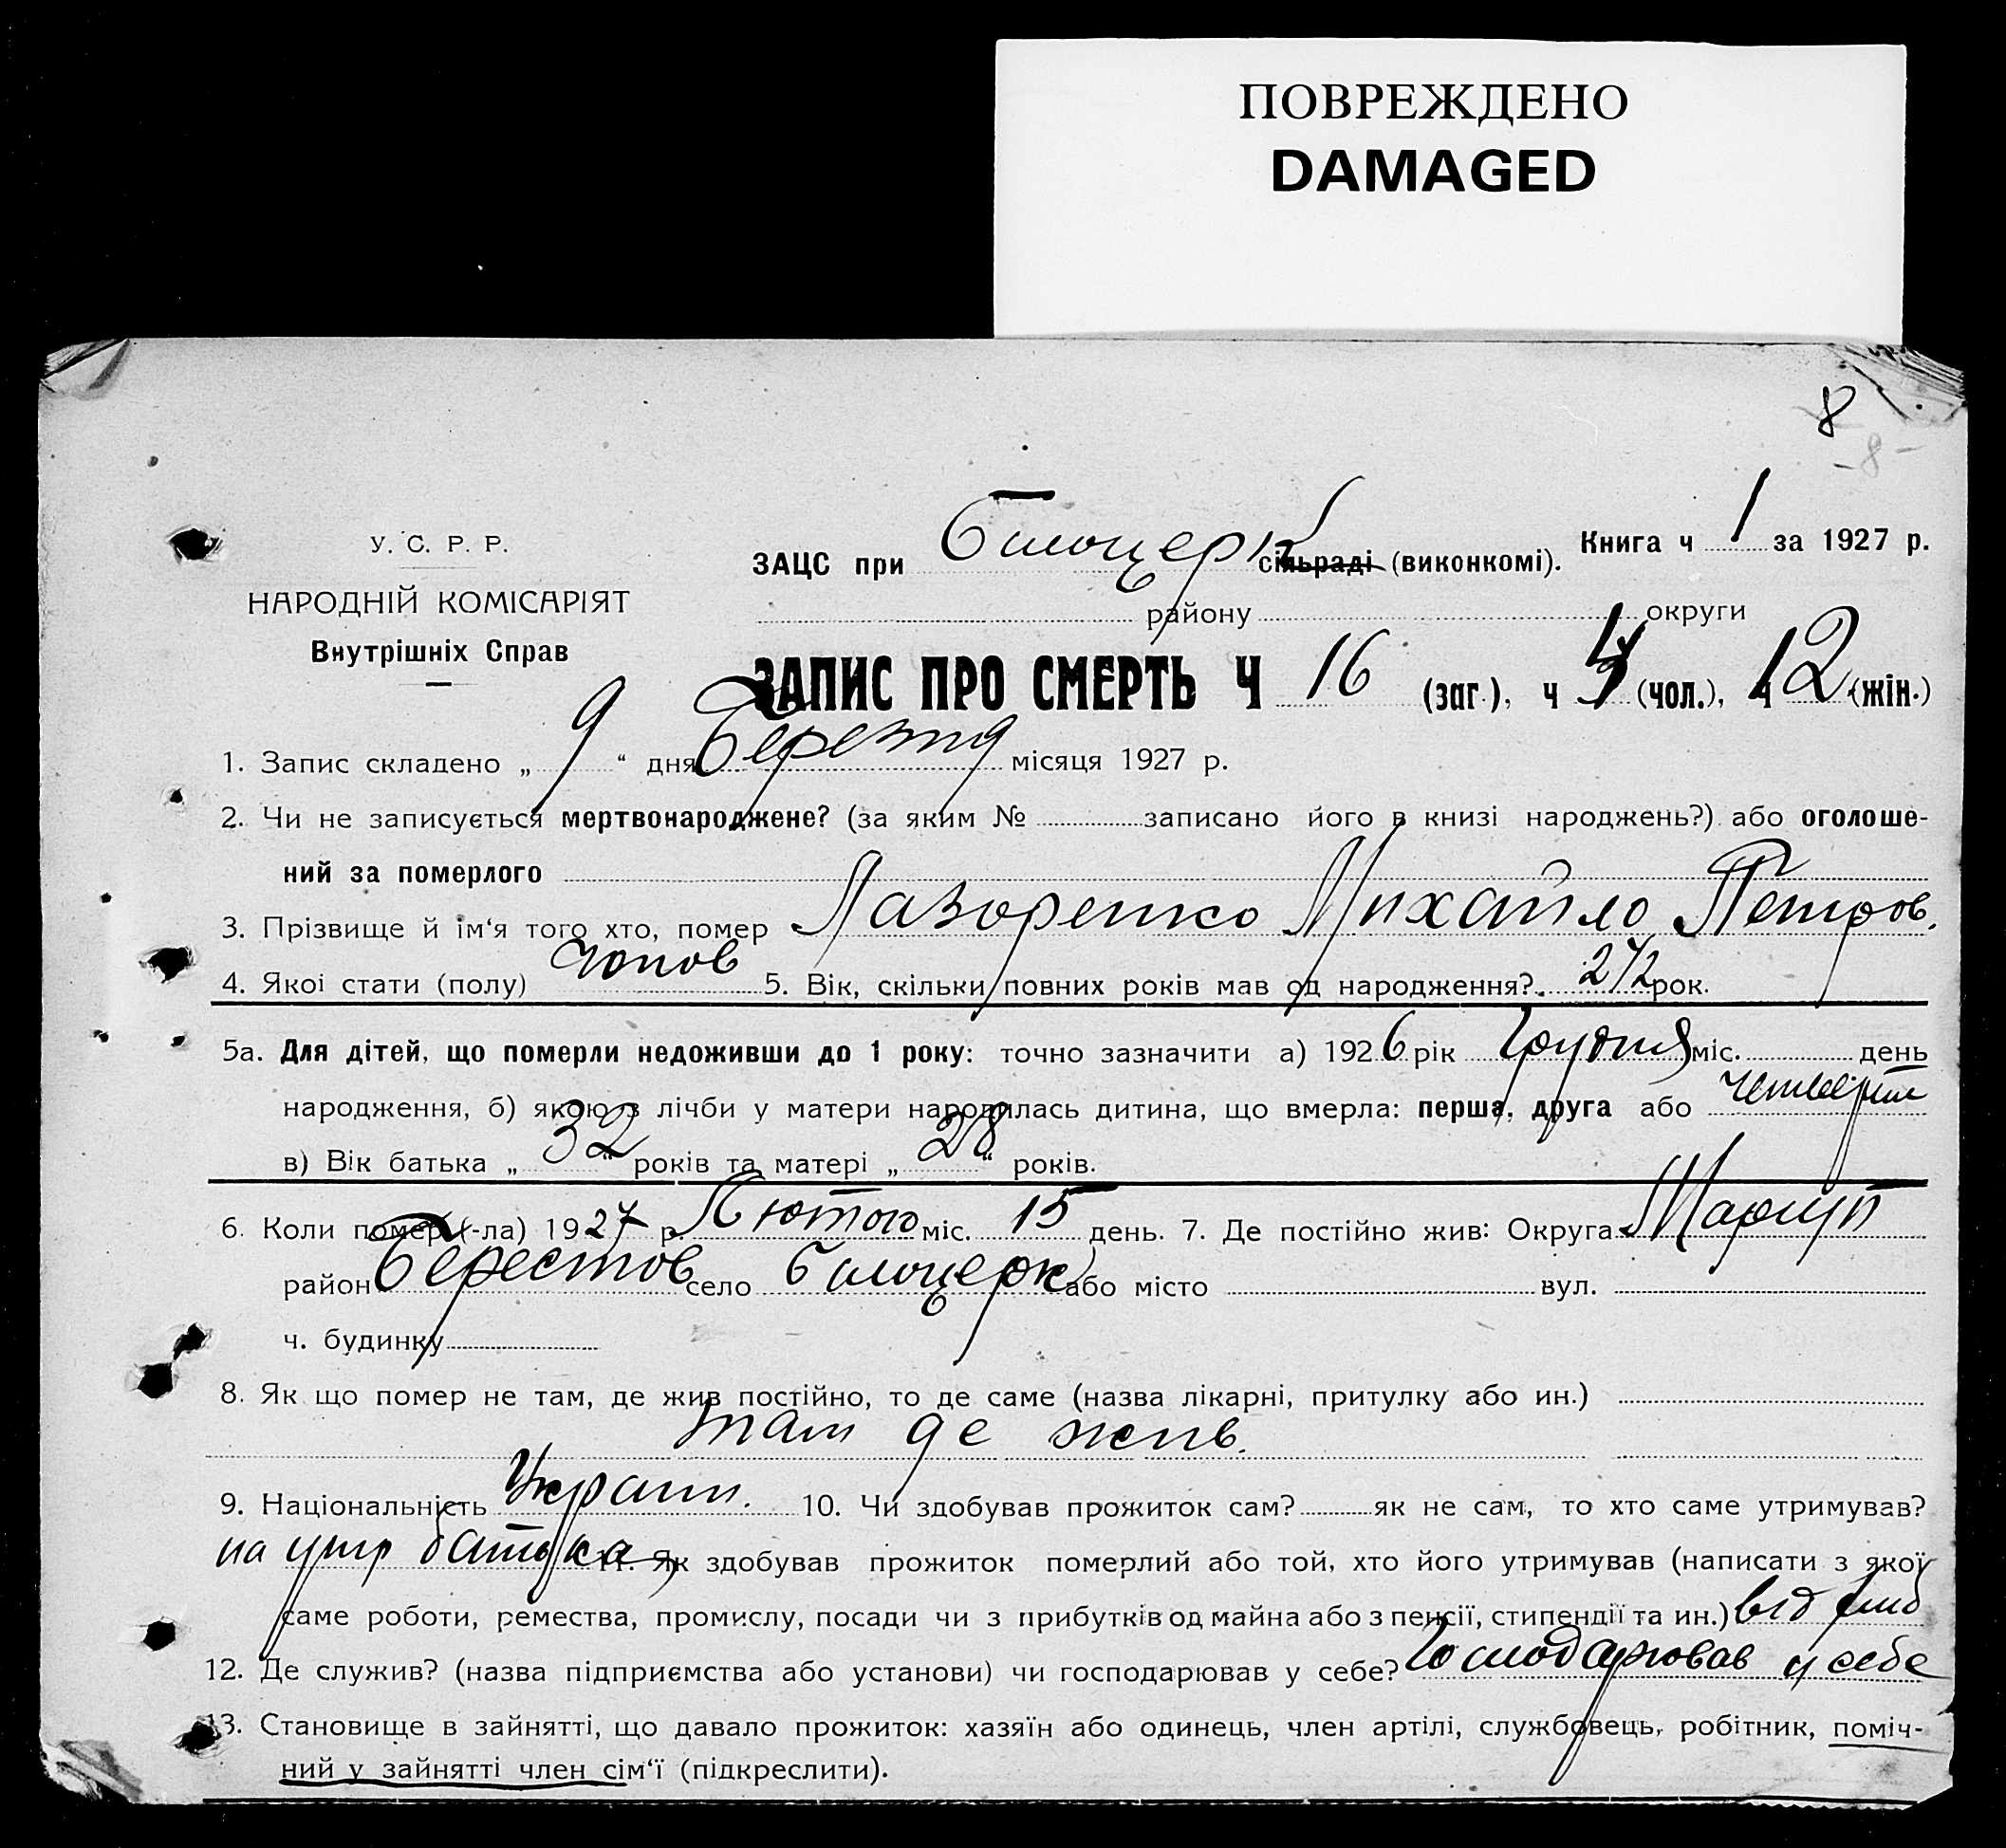 ПОВРЕЖДЕНО
DAMAGED
8
-8-
У. С. Р. Р.
НАРОДНІЙ КОМІСАРІЯТ
Внутрішніх Справ
ЗАЦС при Білоцерк сільраді (виконкомі). Книга ч 1 за 1927 р.
району округи
ЗАПИС ПРО СМЕРТЬ Ч 16 (заг.), ч 4 (чол.), ч 12 (жін.)
1. Запис складено „ 9 “ дня Березня місяця 1927 р.
2. Чи не записується мертвонароджене? (за яким № записано його в книзі народжень?) або оголоше-
ний за померлого
3. Прізвище й ім'я того хто, помер Лазоренко Михайло Петров.
4. Якоі стати (полу) чолов 5. Вік, скільки повних років мав од народження? 2 1/2 рок.
5а. Для дітей, що померли недоживши до 1 року: точно зазначити а) 1926 рік Грудня міс. день
народження, б) якою з лічби у матери народилась дитина, що вмерла: перша, друга або четверта
в) Вік батька „ 32 “ років та матері „ 28 “ років.
6. Коли помер (-ла) 1927 р. Лютого міс. 15 день. 7. Де постійно жив: Округа Маріуп
район Берестов село Білоцерк або місто вул.
ч. будинку
8. Як що помер не там, де жив постійно, то де саме (назва лікарні, притулку або ин.)
там де жив.
9. Національність Украin. 10. Чи здобував прожиток сам? як не сам, то хто саме утримував?
на утр батька 11. Як здобував прожиток померлий або той, хто його утримував (написати з якої
саме роботи, ремества, промислу, посади чи з прибутків од майна або з пенсії, стипендії та ин.) від
12. Де служив? (назва підприємства або установи) чи господарював у себе? Господарював у себе
13. Становище в зайнятті, що давало прожиток: хазяїн або одинець, член артілі, службовець, робітник, поміч-
ний у зайнятті член сім'ї (підкреслити).